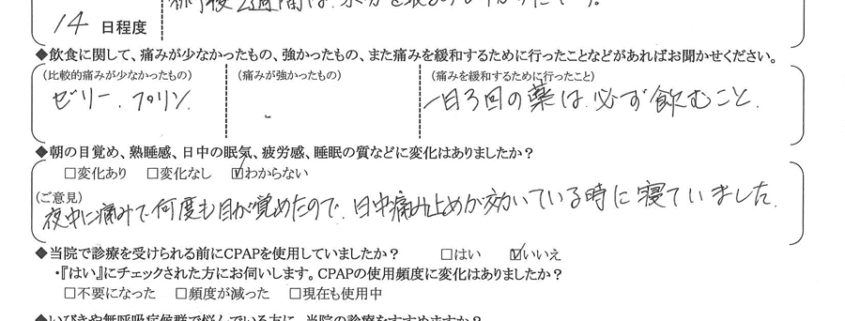 術後2週間は、水分を取るのも
14 日程度
◆飲食に関して、痛みが少なかったもの、強かったもの、また痛みを緩和するために行ったことなどがあればお聞かせください。
(比較的痛みが少なかったもの) (痛みが強かったもの) (痛みを緩和するために行ったこと)
ゼリー、プリン 一日3回の薬は必ず飲むこと。
◆朝の目覚め、熟睡感、日中の眠気、疲労感、睡眠の質などに変化はありましたか？
□変化あり □変化なし ☑わからない
(ご意見)
夜中に痛みで何度も目が覚めたので、日中痛み止めが効いている時に寝ていました。
◆当院で診療を受けられる前にCPAPを使用していましたか？ □はい ☑いいえ
・『はい』にチェックされた方にお伺いします。CPAPの使用頻度に変化はありましたか？
□不要になった □頻度が減った □現在も使用中
◆いびきや無呼吸症候群で悩んでいる方に、当院の診療をすすめますか？